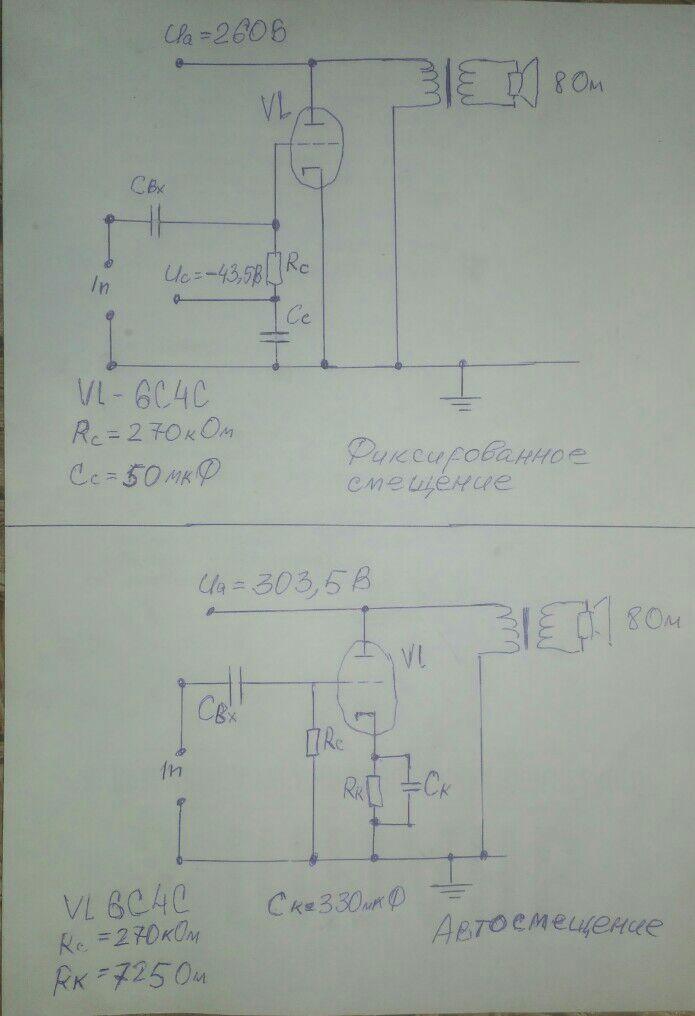 Uа=260В
VL
8Ом
Cвх
In
Uс=-43,5В
Rс
Cс
VL- 6С4С
Rс=270кОм
Cс=50мкФ
Фиксированное
смещение
Uа=303,5В
VL
8Ом
Cвх
Rс
In
Rк
Cк
VL 6С4С
Rс=270кОм
Rк=725Ом
Cк=330мкФ
Автосмещение